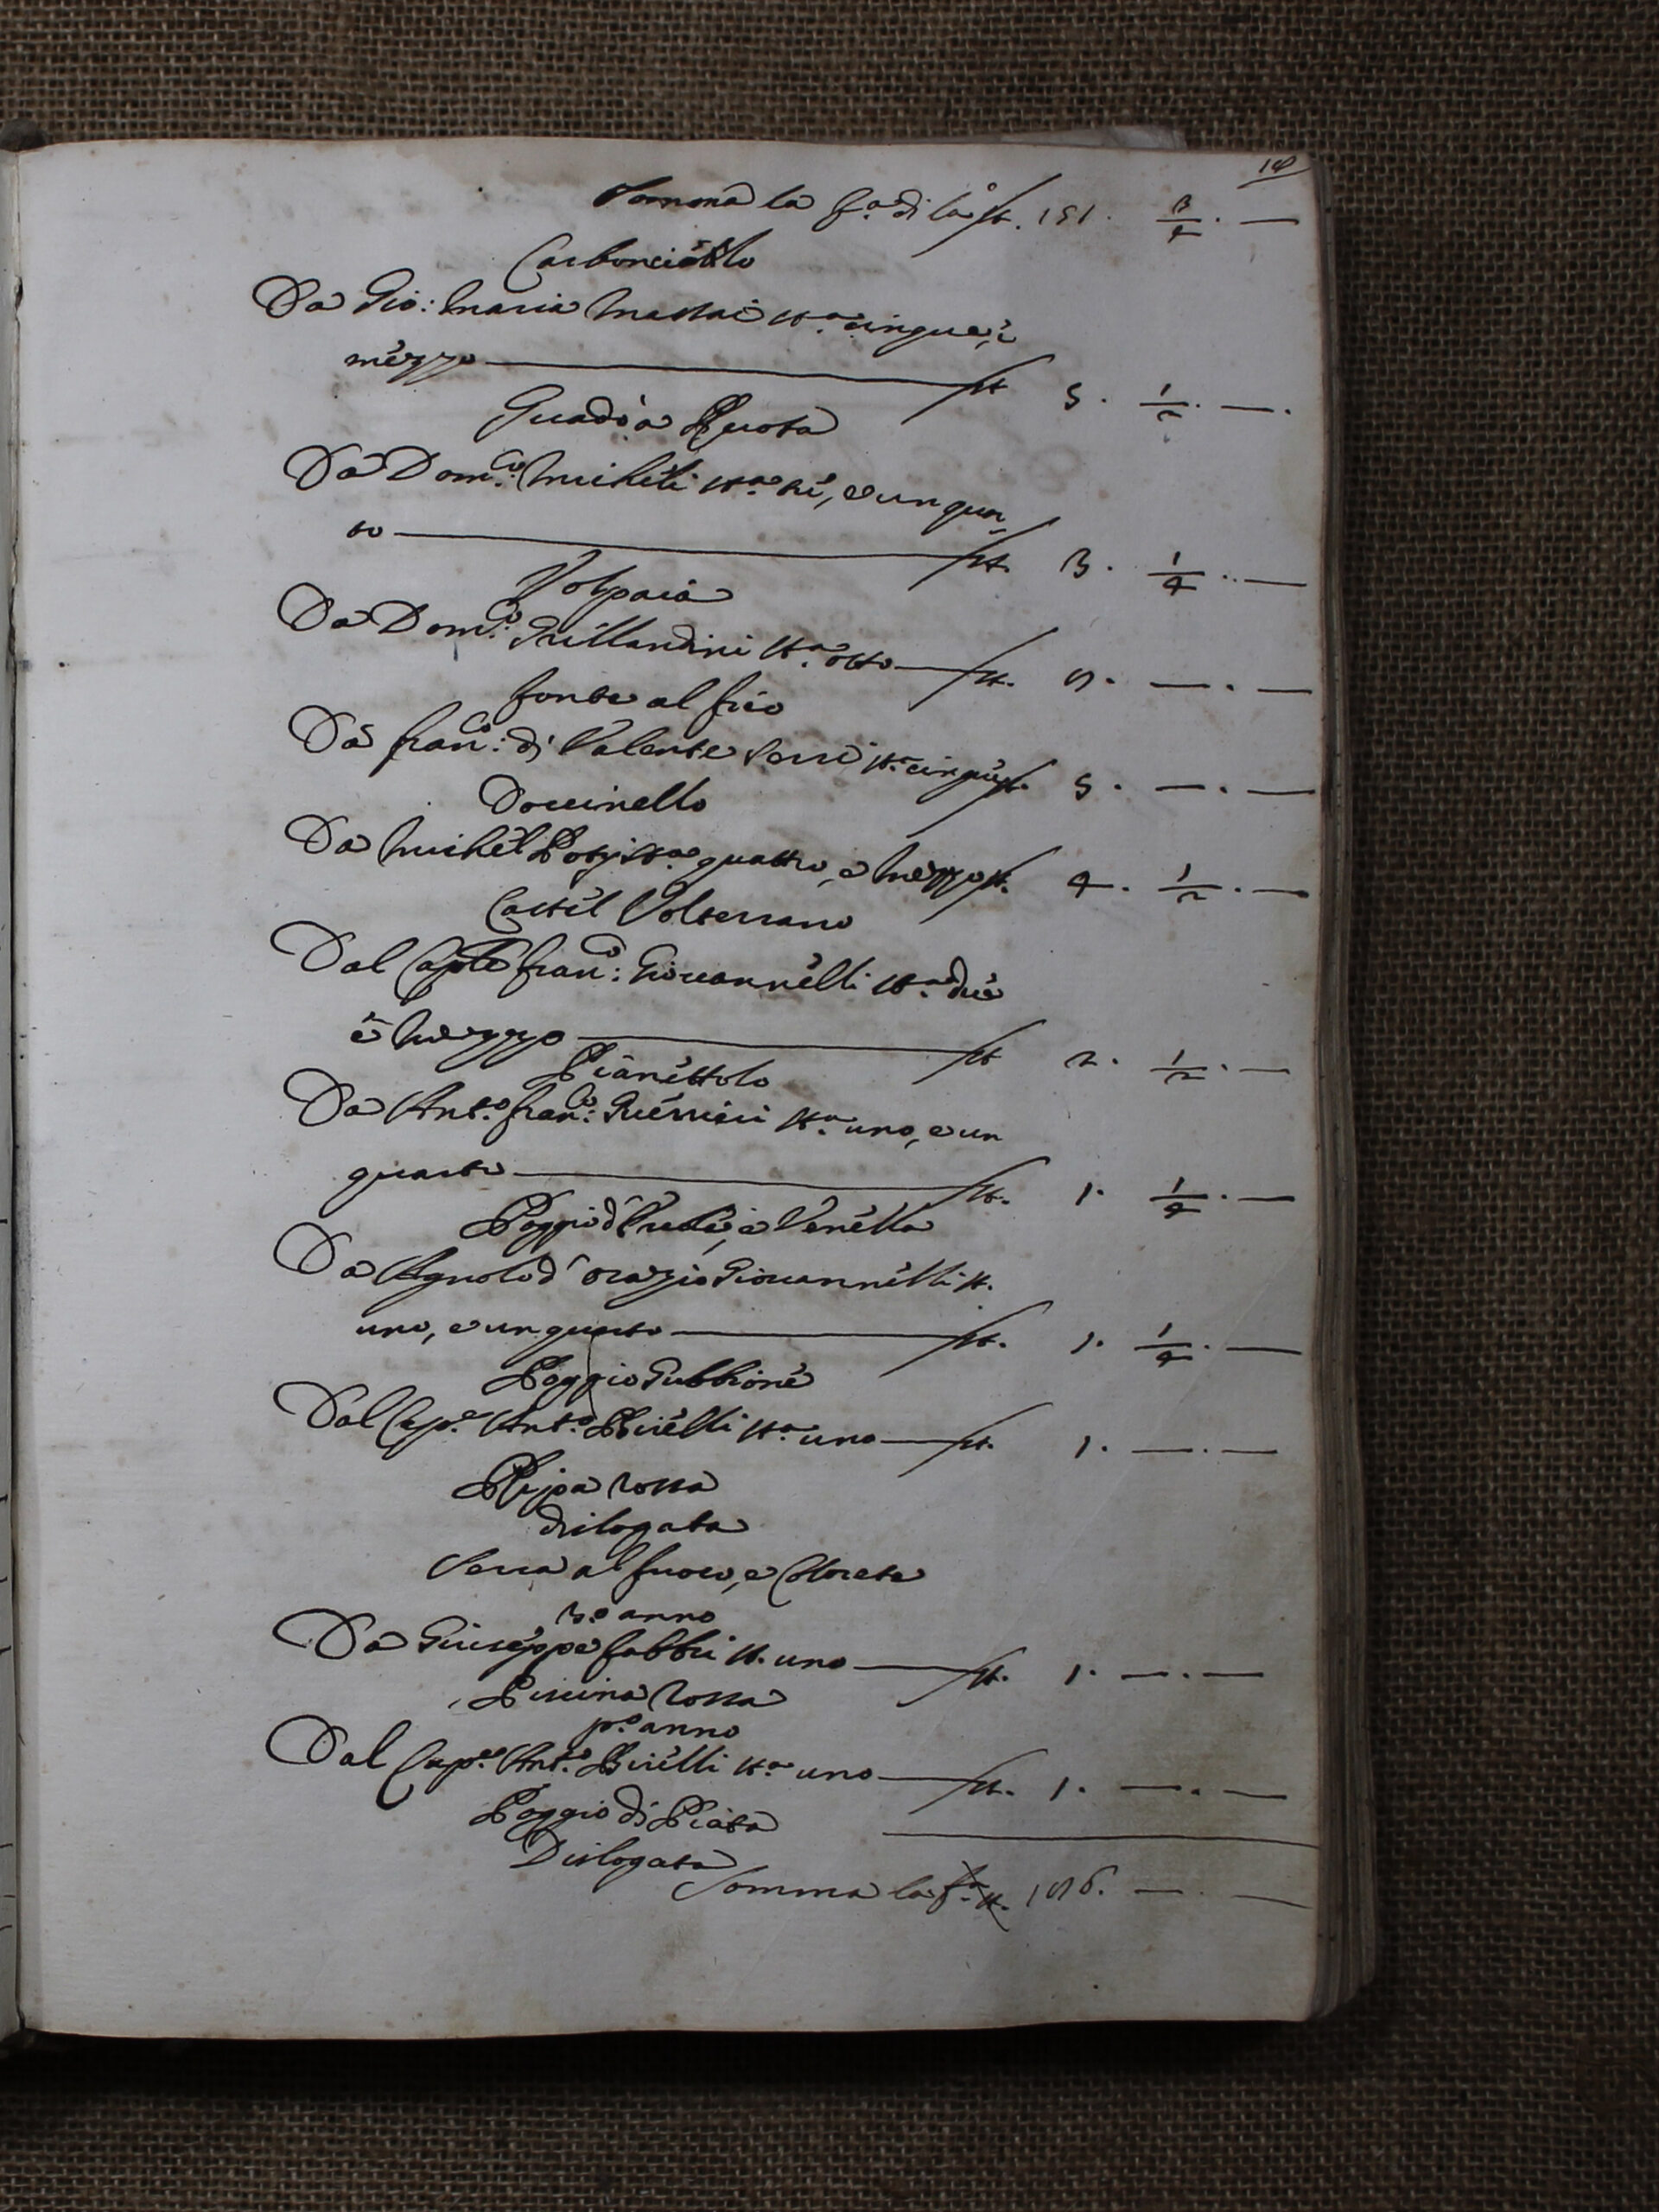 Somma la f.a di là st. 151. 3/4. —
Carbonciotolo
Da Gio: Maria Massai st.a cinque, e
mezzo — st. 5. 1/2. —.
Guado a Ruota
Da Dom.co Micheli st.a tré, e un quar
to — st. 3. 1/4. —
Volpaia
Da Dom.co Grillandini st.a otto — st. 8. —. —
Fonte al fico
Da Fran.co di Valente Serri st.a cinque st. 5. —. —
Doccinello
Da Michel st.a quattro, e mezzo st. 4. 1/2. —
Castel Volterrano
Dal Cap.le Fran.co Giovannelli st.a due
e mezzo — st. 2. 1/2. —
Pianettolo
Da Ant.o Fran.co Guerrieri st.a uno, e un
quarto — st. 1. 1/4. —
Poggio d' e Venella
Da Agnolo d'Orazio Giovannelli st.
uno, e un quarto — st. 1. 1/4. —
Poggio Gubbione
Dal Cap.e Ant.o Birelli st.a uno — st. 1. —. —
Ripa rossa
dislogata
Serra al fuoco, e
3.o anno
Da Giuseppe Fabbri st. uno — st. 1. —. —
Piscina rossa
p.o anno
Dal Cap.e Ant.o Birelli st.a uno — st. 1. —. —
Poggio di Piata
Dislogata
Somma la f.a st. 186. —. —